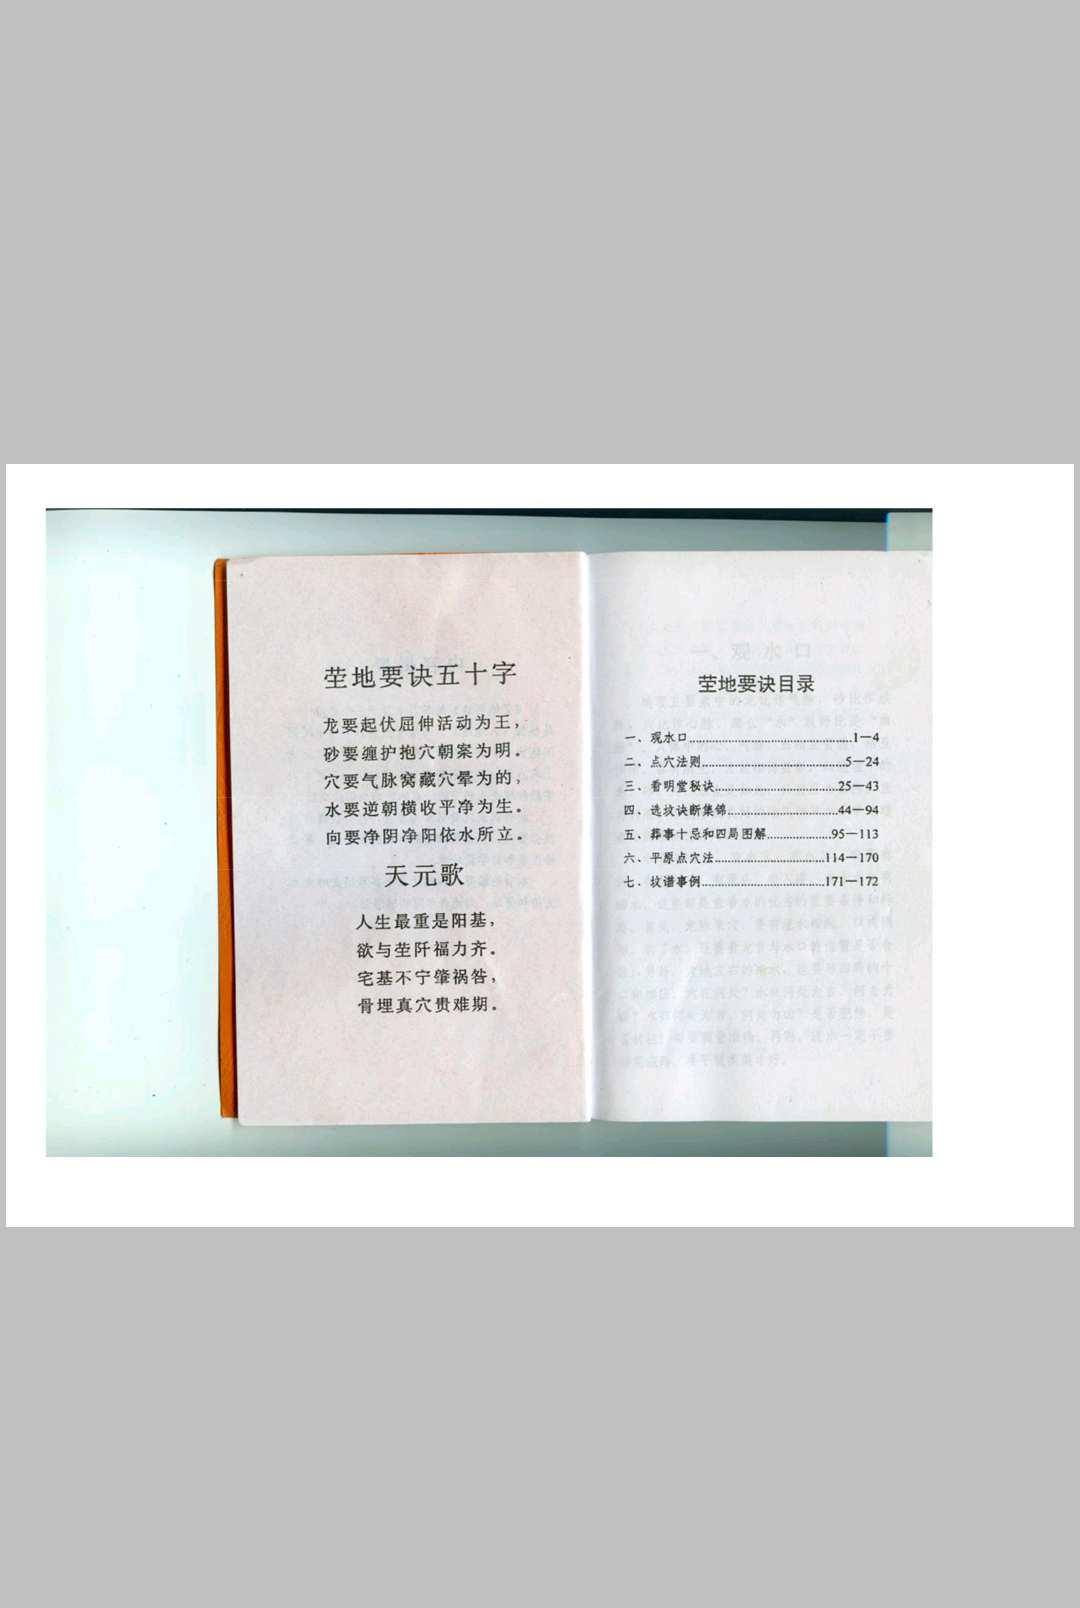 茔地要诀五十字
龙要起伏屈伸活动为王，
砂要缠护抱穴朝案为明。
穴要气脉窝藏穴晕为的，
水要逆朝横收平净为生。
向要净阴净阳依水所立。
天元歌
人生最重是阳基，
欲与茔阡福力齐。
宅基不宁肇祸咎，
骨埋真穴贵难期。
茔地要诀目录
一、观水口..................................................1—4
二、点穴法则............................................5—24
三、看明堂秘诀......................................25—43
四、选坟诀断集锦..................................44—94
五、葬事十忌和四局图解....................95—113
六、平原点穴法..................................114—170
七、坟谱事例......................................171—172
一、观水口